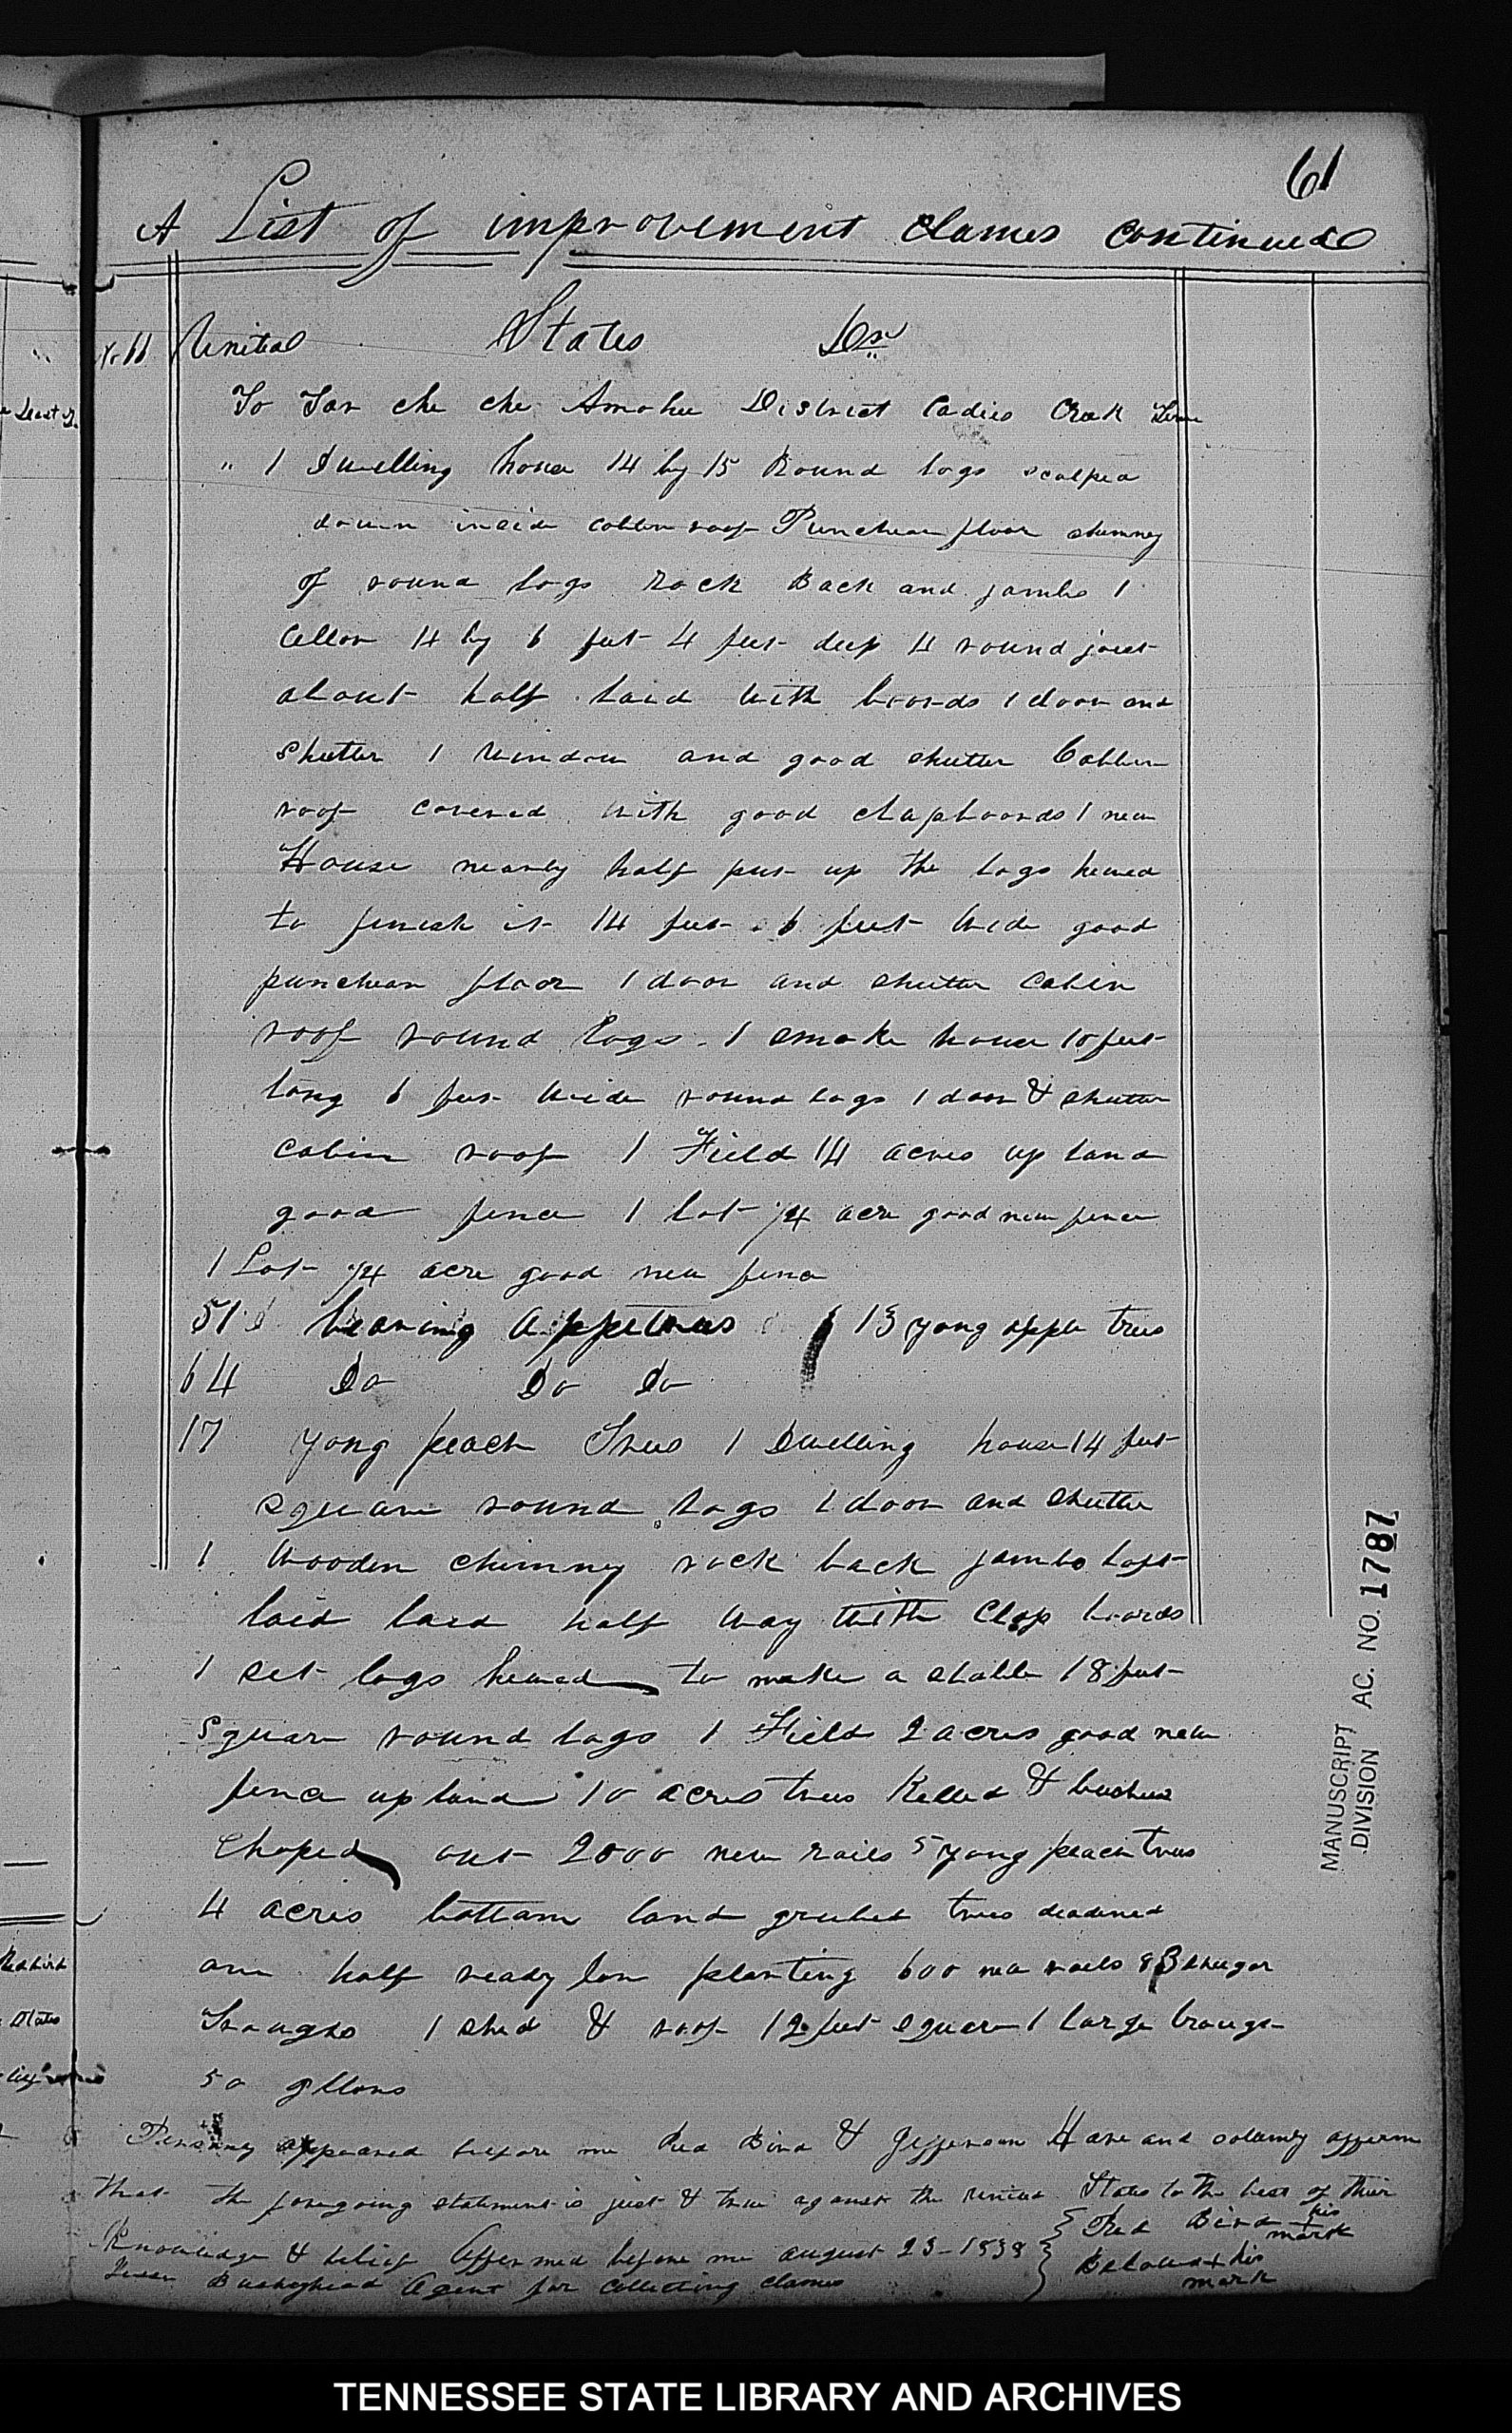 61
A List of improvement Clames continued
No 11 United States Dr
To Tar che che Amohee District Cadies Creek Tenn
" 1 Dwelling house 14 by 15 Round logs scalped
down inside cabbin roof Puncheon floor chimney
of round logs Rock Back and jambs 1
Cellar 14 by 6 feet 4 feet deep 4 round joist
about half laid with boards 1 door and
Shutter 1 window and good shutter Cabbin
roof covered with good clapboards 1 new
House nearly half put up the logs hewed
to finish it 14 feet 6 feet wide good
puncheon floor 1 door and shutter cabin
roof round logs 1 smoke house 10 feet
long 6 feet wide round logs 1 door & shutter
cabin roof 1 Field 14 acres up land
good fence 1 lot 1/4 acre good new fence
1 Lot 1/4 acre good new fence
51 bearing 13 yong apple trees
64 Do Do Do
17 yong peach Trees 1 Dwelling house 14 feet
square round logs 1 door and shutter
1 Wooden chimney rock back jambs loft
laid laid half way with Clap boards
1 set logs hewed to make a stable 18 feet
Square round logs 1 Field 2 acres good new
fence up land 10 acres trees Killed & bushes
Choped out 2000 new rails 5 yong peach trees
4 acres bottom land grubed trees deadined
one half ready for planting 600 new rails 83 shugar
Troughs 1 shed & roof 12 feet square 1 large trough
50 gllons
appeared before me Red Bird & Jefferson Hare and solamly afferm
that the foregoing statement is just & true against the United States to the best of their
Knowledge & belief Affermed before me august 23 - 1838 Red Bird + his mark
Bushyhead Agent for collecting clames + his mark
Redbird
States
MANUSCRIPT DIVISION AC. NO. 1787
TENNESSEE STATE LIBRARY AND ARCHIVES